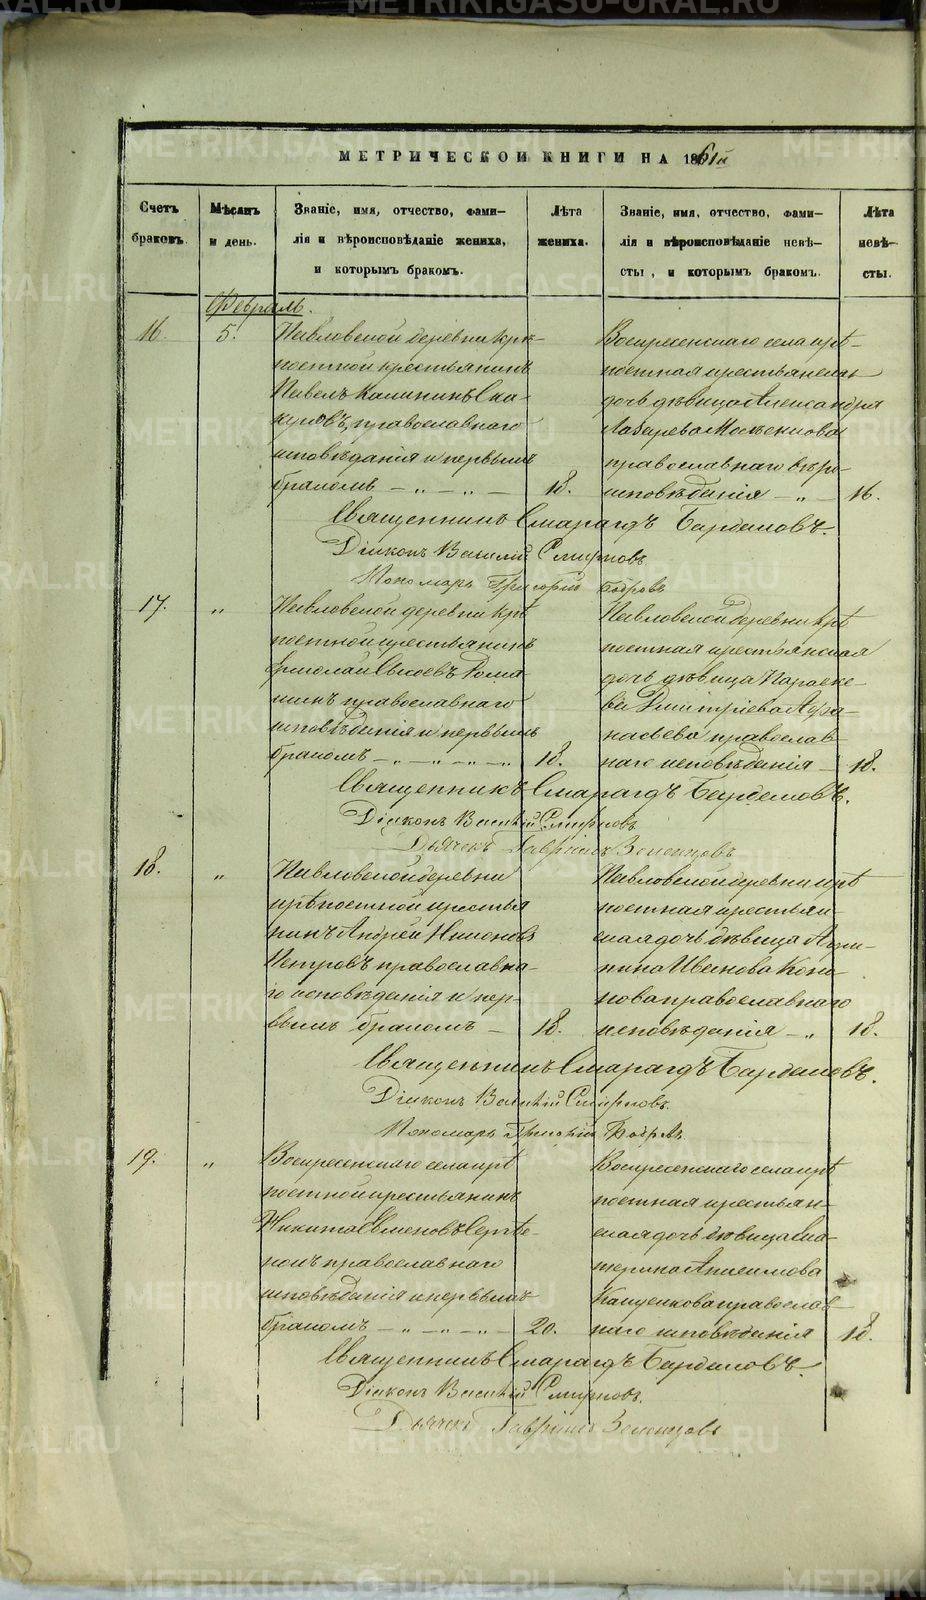 МЕТРИЧЕСКОЙ КНИГИ НА 1861й
Счетъ браковъ.
Мѣсяцъ и день.
Званіе, имя, отчество, фами-
лія и вѣроисповѣданіе жениха,
и которымъ бракомъ.
Лѣта жениха.
Званіе, имя, отчество, фами-
лія и вѣроисповѣданіе невѣ-
сты, и которымъ бракомъ.
Лѣта невѣ-
сты.
Февраль.
16.
5.
Павловской деревни крѣ-
постной крестьянинъ
Павелъ Калининъ
православнаго
исповѣданія и первымъ
бракомъ — „ — „ —
18.
Воскресенскаго села крѣ-
постная крестьянская
дочь дѣвица Александра
Лазарева
православнаго вѣро-
исповѣданія — „ —
16.
Священникъ Смарагдъ Бардаковъ.
Діаконъ Василій Смирновъ
Пономарь Григорій Бобровъ
17.
„
Павловской деревни крѣ
постной крестьянинъ
Ермолай Сысоевъ Рома
нинъ православнаго
исповѣданія и первымъ
бракомъ — „ — „ — „ — „
18.
Павловской деревни крѣ
постная крестьянская
дочь дѣвица Параске-
ва Димитріева Афа-
насьева православ-
наго исповѣданія —
18.
Священникъ Смарагдъ Бардаковъ.
Діаконъ Василій Смирновъ
Дьячекъ Гавріилъ
18.
„
Павловской деревни
крѣпостной крестья
нинъ Андрей
Петровъ православна-
го исповѣданія и пер-
вымъ бракомъ —
18.
Павловской деревни крѣ
постная крестьян-
ская дочь дѣвица
Иванова
православнаго
исповѣданія — „
18.
Священникъ Смарагдъ Бардаковъ.
Діаконъ Василій Смирновъ.
Пономарь Григорій Бобровъ.
19.
„
Воскресенскаго села крѣ
постной крестьянинъ
Никита Семеновъ Сергѣе-
православнаго
исповѣданія и первымъ
бракомъ — „ — „ — „ —
20.
Воскресенскаго села крѣ
постная крестьян-
ская дочь дѣвица Ека-
терина Анисимова
православ-
наго исповѣданія
18.
Священникъ Смарагдъ Бардаковъ
Діаконъ Василій Смирновъ.
Дьячекъ Гавріилъ
METRIKI.GASO-URAL.RU